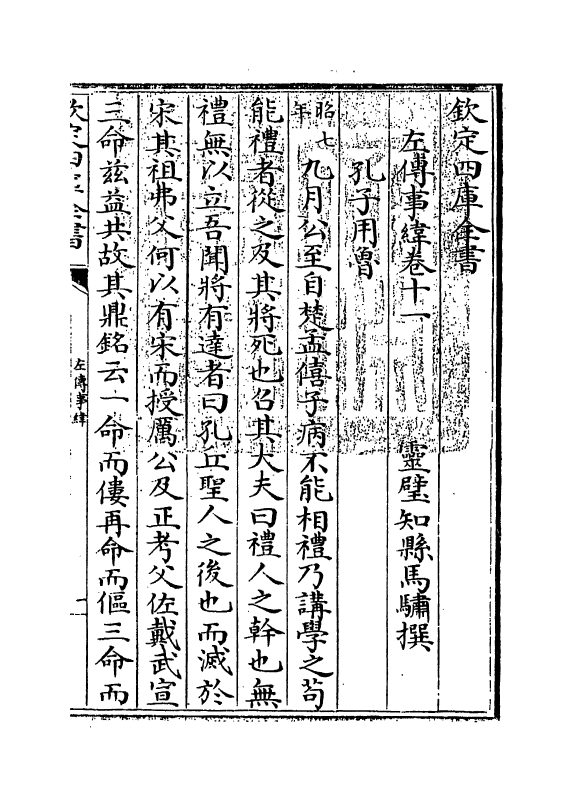 欽定四庫全書
左傳事緯卷十一　靈璧知縣馬驌撰
孔子用魯
昭七年九月公至自楚孟僖子病不能相禮乃講學之苟
能禮者從之及其將死也召其大夫曰禮人之幹也無
禮無以立吾聞將有達者曰孔丘聖人之後也而滅於
宋其祖弗父何以有宋而授厲公及正考父佐戴武宣
三命茲益共故其鼎銘云一命而僂再命而傴三命而
欽定四庫全書
左傳事緯
一